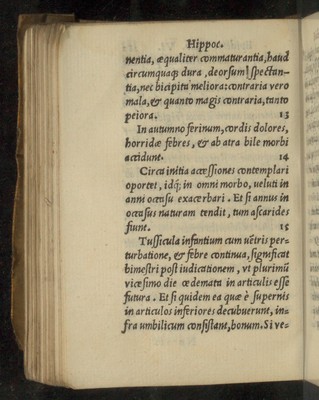 Hippoc.
nentia, æqualiter commaturantia, haud
circumquaq; dura, deorsum spectan-
tia, nec bicipita meliora: contraria vero
mala, & quanto magis contraria, tanto
peiora. 13
In autumno ferinum, cordis dolores,
horridæ febres, & ab atra bile morbi
accidunt. 14
Circa initia accessiones contemplari
oportet, idq; in omni morbo, veluti in
anni occasu exacerbari. Et si annus in
occasus naturam tendit, tum ascarides
fiunt. 15
Tussicula infantium cum vẽtris per-
turbatione, & febre continua, significat
bimestri post iudicationem, vt plurimũ
vicesimo die œdemata in articulis esse
futura. Et si quidem ea quæ è supernis
in articulos inferiores decubuerunt, in-
fra umbilicum consistant, bonum. Si ve-